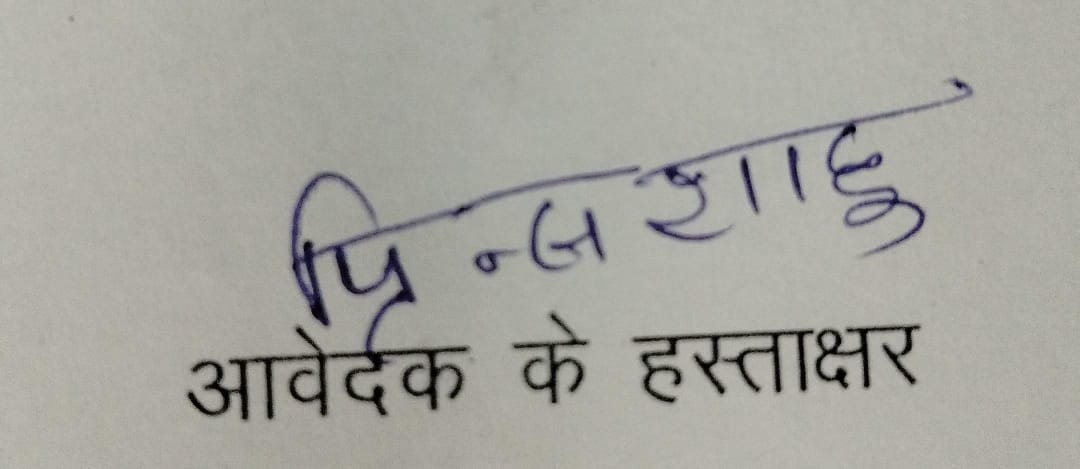 प्रिन्स शाहु
आवेदक के हस्ताक्षर